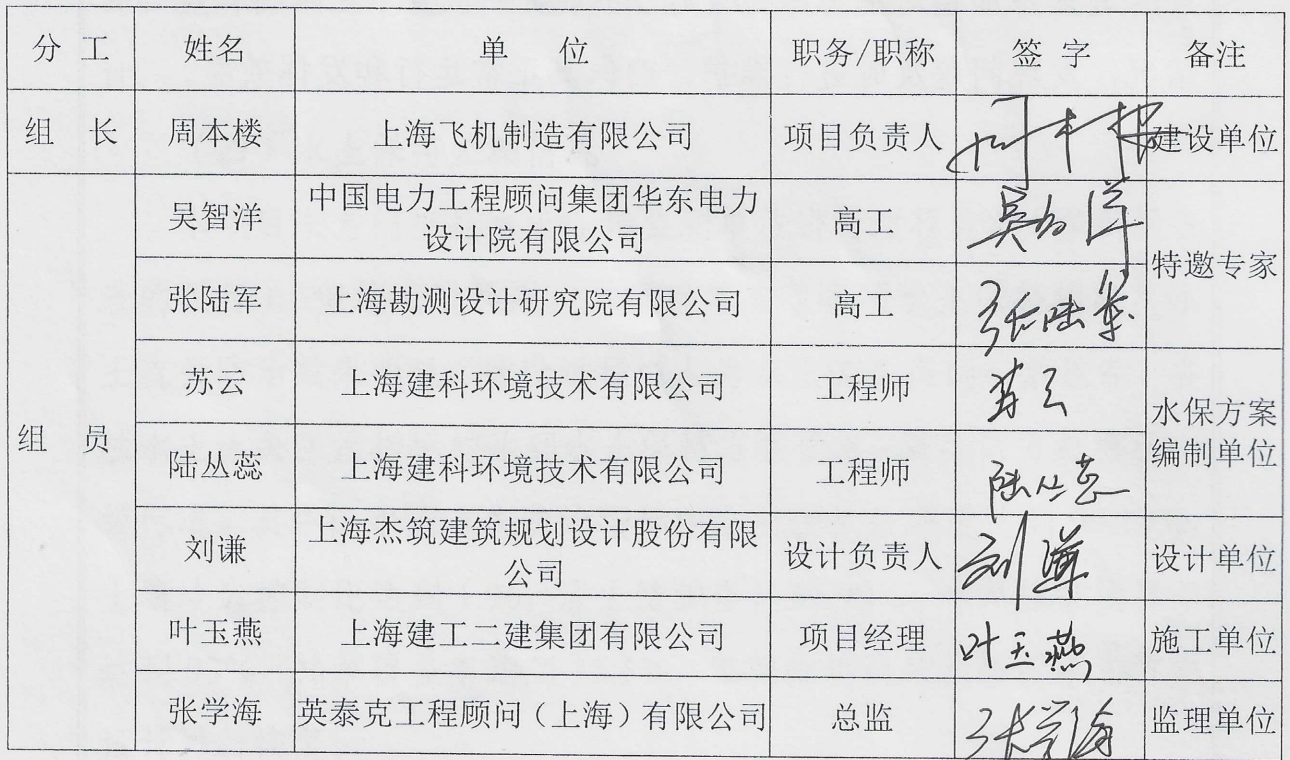 分 工 姓名 单 位 职务/职称 签 字 备注
组 长 周本楼 上海飞机制造有限公司 项目负责人 周本楼 建设单位
吴智洋 中国电力工程顾问集团华东电力
设计院有限公司 高工 吴智洋
特邀专家
张陆军 上海勘测设计研究院有限公司 高工 张陆军
组 员
苏云 上海建科环境技术有限公司 工程师 苏云
水保方案
编制单位
陆丛蕊 上海建科环境技术有限公司 工程师 陆丛蕊
刘谦 上海杰筑建筑规划设计股份有限
公司 设计负责人 刘谦 设计单位
叶玉燕 上海建工二建集团有限公司 项目经理 叶玉燕 施工单位
张学海 英泰克工程顾问（上海）有限公司 总监 张学海 监理单位